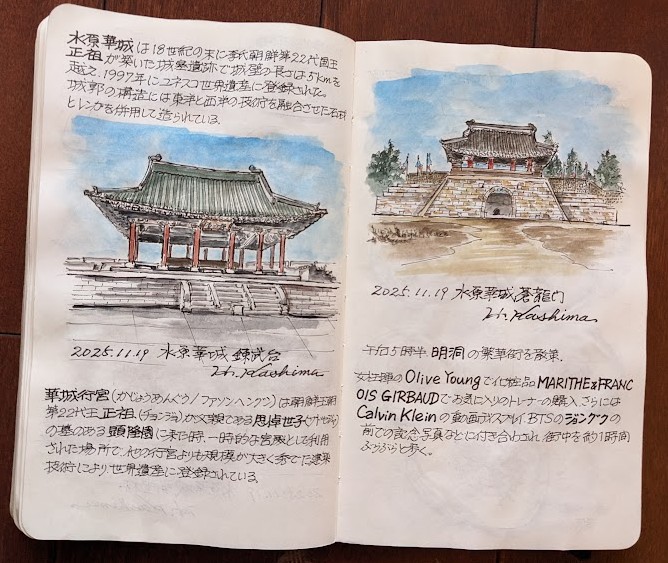 水原華城は18世紀の末に李氏朝鮮第22代国王
正祖が築いた城塞遺跡で城壁の長さは5kmを
越え、1997年にユネスコ世界遺産に登録された。
城郭の構造には東洋と西洋の技術を融合させた石材
とレンガを併用して造られている。
2025.11.19 水原華城 錬武台
H. Kashima
華城行宮(かじょうあんぐう/ファソンヘングン)は朝鮮王朝
第22代王正祖(チョンジョ)が父親である思悼世子(サドセジャ)
の墓のある顕隆園に来た時、一時的な宮殿として利用
された場所で、他の行宮よりも規模が大きく秀でた建築
技術により世界遺産に登録されている。
2025.11.19 水原華城 蒼龍門
H. Kashima
午后5時半、明洞の繁華街を散策。
女性陣のOlive Youngで化粧品MARITHE&FRANC
OIS GIRBAUDでお気に入りのトレーナーの購入、さらには
Calvin Kleinの壁面ディスプレイBTSのジョングクの
前での記念写真などに付き合わされ街中を約1時間
ふらふらと歩く。